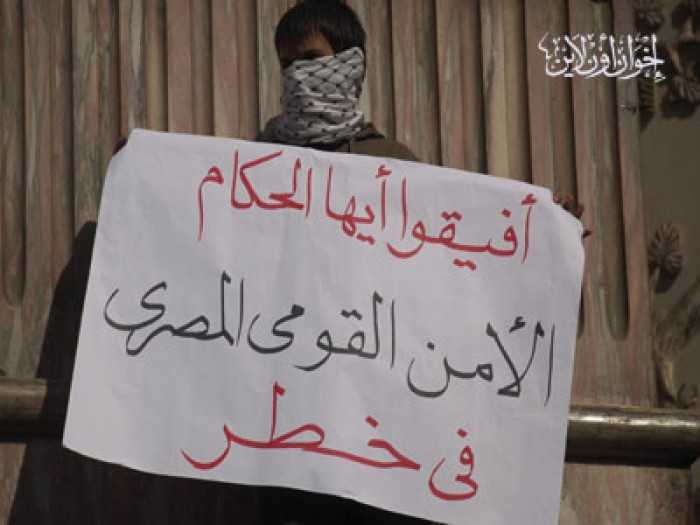 إخوان أون لاين
أفيقوا أيها الحكام
الأمن القومى المصرى
فى خطر